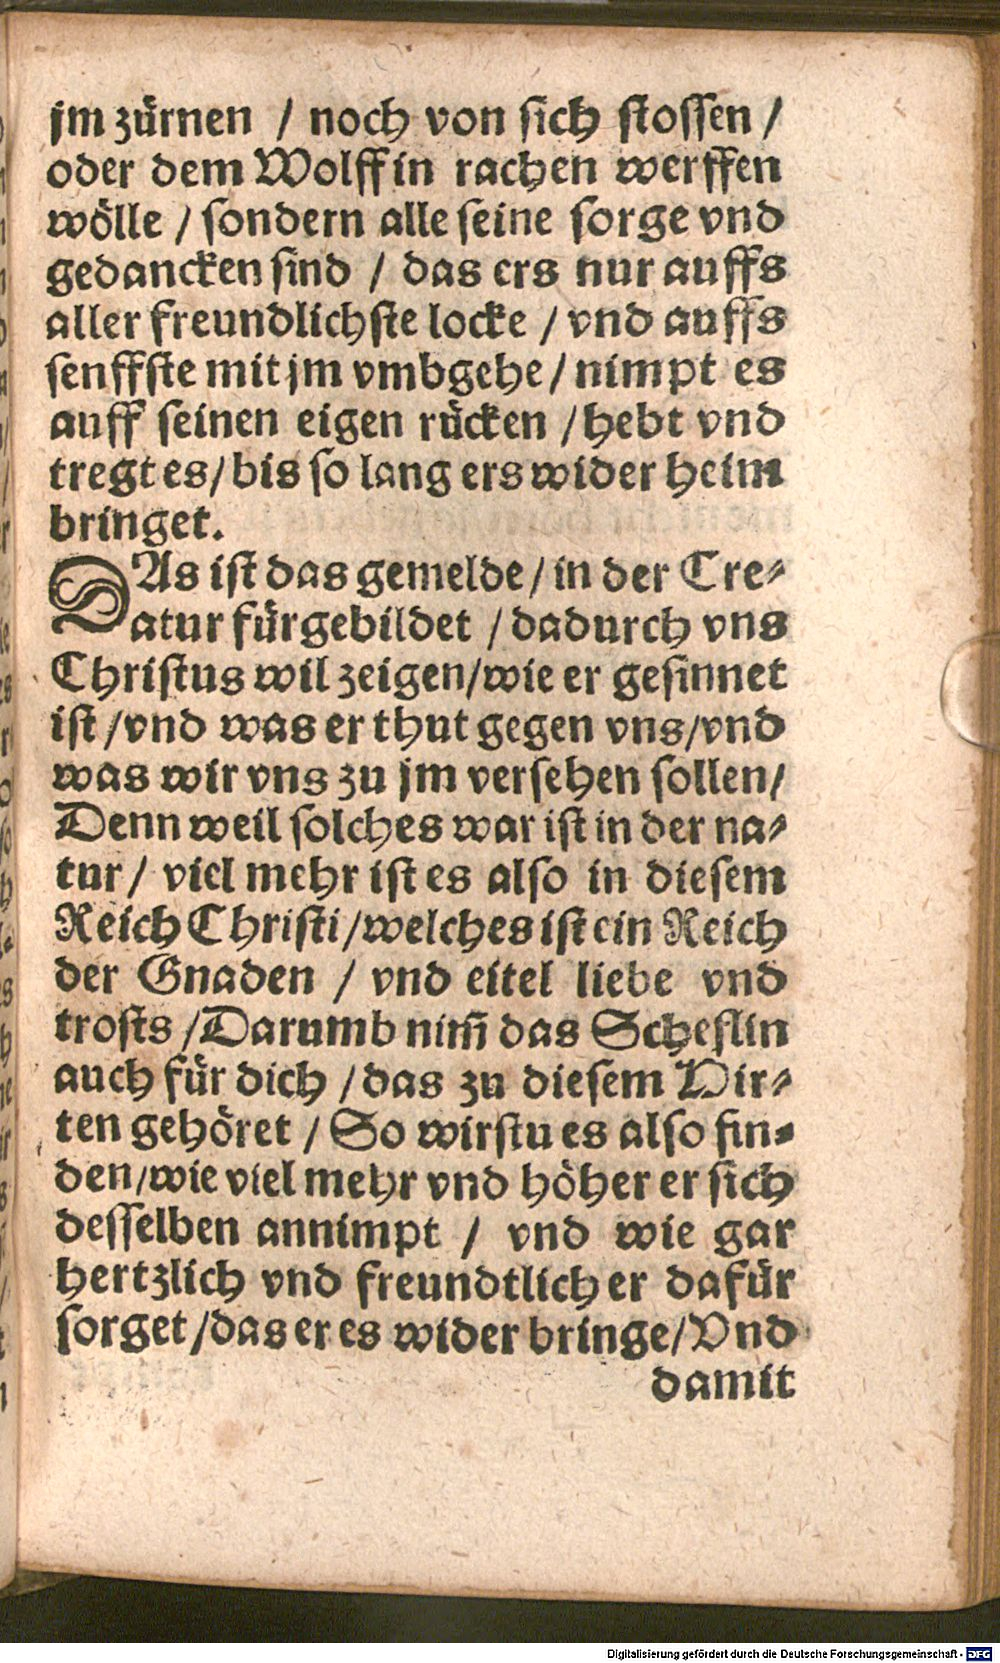 jm zürnen / noch von sich stossen /
oder dem Wolff in rachen werffen
wölle / sondern alle seine sorge vnd
gedancken sind / das ers nur auffs
aller freundlichste locke / vnd auffs
senffste mit jm vmbgehe / nimpt es
auff seinen eigen rücken / hebt vnd
tregt es / bis so lang ers wider heim
bringet.
DAs ist das gemelde / in der Cre-
atur fürgebildet / dadurch vns
Christus wil zeigen / wie er gesinnet
ist / vnd was er thut gegen vns / vnd
was wir vns zu jm versehen sollen /
Denn weil solches war ist in der na-
tur / viel mehr ist es also in diesem
Reich Christi / welches ist ein Reich
der Gnaden / vnd eitel liebe vnd
trosts / Darumb nim̃ das Scheflin
auch für dich / das zu diesem Hir-
ten gehöret / So wirstu es also fin-
den / wie viel mehr vnd höher er sich
desselben annimpt / vnd wie gar
hertzlich vnd freundtlich er dafür
sorget / das er es wider bringe / Vnd
damit
Digitalisierung gefördert durch die Deutsche Forschungsgemeinschaft - DFG